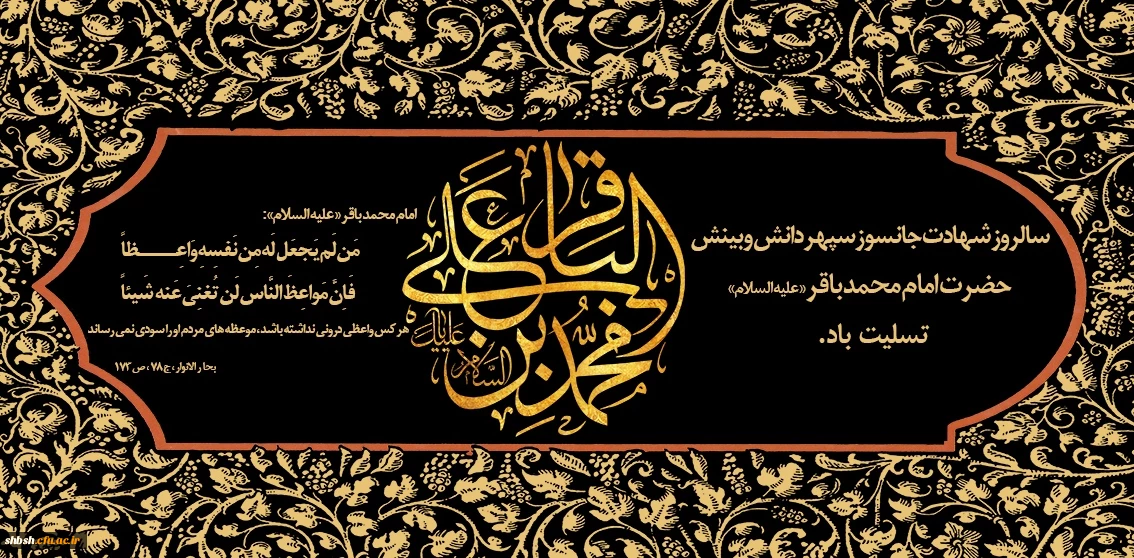 سالروز شهادت جانسوز سپهر دانش و بینش
حضرت امام محمد باقر «علیه السلام»
تسلیت باد.
محمد بن علی الباقر
علیک السلام
امام محمد باقر «علیه السلام»:
مَن لَم يَجعَل لَه مِن نَفسِهِ وَاعِــــــظاً
فَإنَّ مَواعِظَ النَّاسِ لَن تُغنِيَ عَنه شَيئاً
هرکس واعظی درونی نداشته باشد، موعظه های مردم او را سودی نمی رساند
بحار الانوار، ج ۷۸، ص ۱۷۳
shbsh.cfu.ac.ir